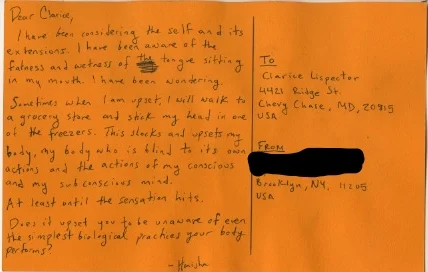 Dear Clarice,
I have been considering the self and its
extensions. I have been aware of the
fatness and wetness of the tongue sitting
in my mouth. I have been wondering.
Sometimes when I am upset, I will walk to
a grocery store and stick my head in one
of the freezers. This shocks and upsets my
body, my body who is blind to its own
actions and the actions of my conscious
and my subconscious mind.
At least until the sensation hits.
Does it upset you to be unaware of even
the simplest biological practices your body
performs?
TO
Clarice Lispector
4421 Ridge St.
Chevy Chase, MD, 20815
USA
FROM
Brooklyn, NY, 11205
USA